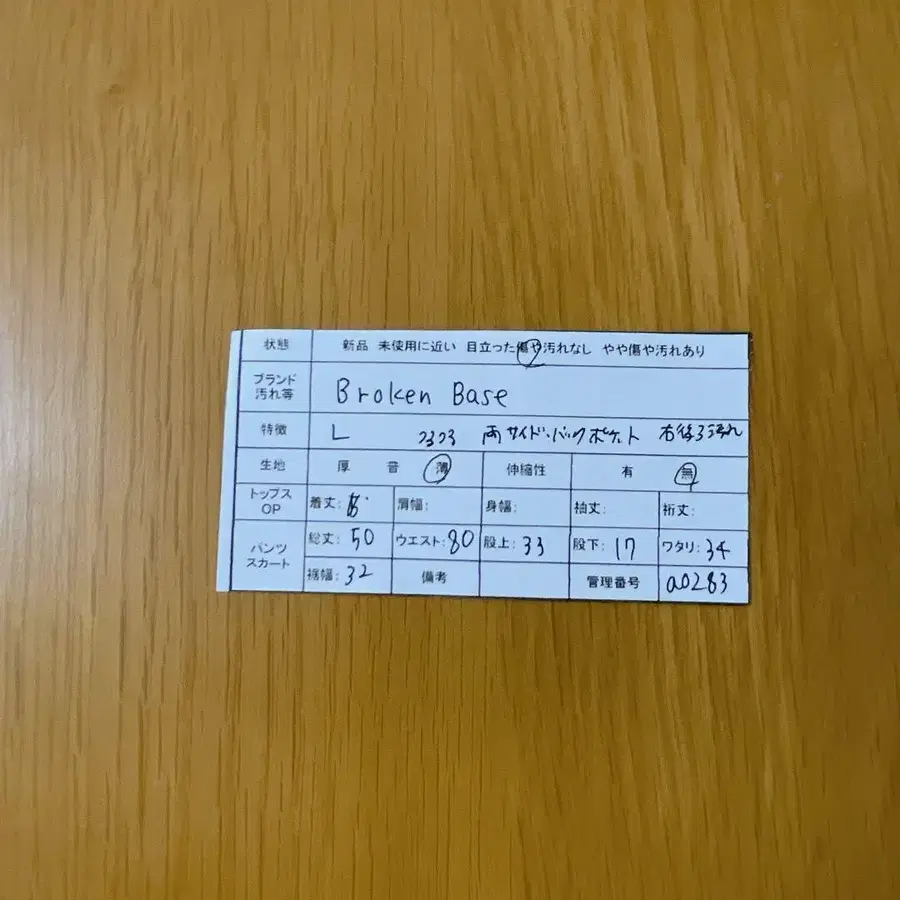 状態 新品 未使用に近い 目立った傷や汚れなし やや傷や汚れあり
ブランド 汚れ等 Broken Base
特徴 L 両サイド・バックポケット 右後ろ汚れ
生地 厚 普 薄 伸縮性 有 無
トップス OP 着丈: 肩幅: 身幅: 袖丈: 裄丈:
パンツ スカート 総丈: 50 ウエスト: 80 股上: 33 股下: 17 ワタリ: 34
裾幅: 32 備考 管理番号 a0283